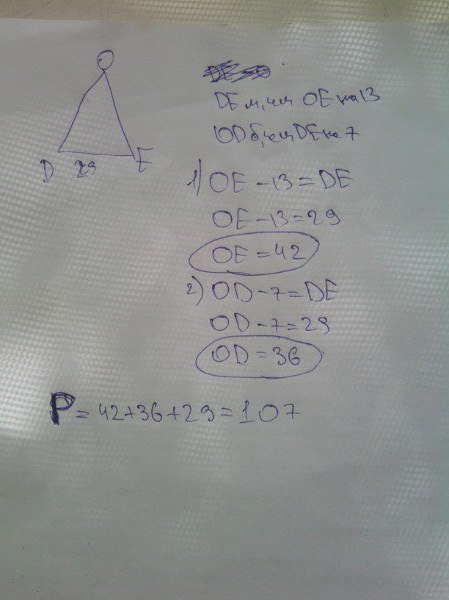 O
D 29 E
DE м, чем OE на 13
OD б, чем DE на 7
1) OE - 13 = DE
OE - 13 = 29
OE = 42
2) OD - 7 = DE
OD - 7 = 29
OD = 36
P = 42 + 36 + 29 = 107